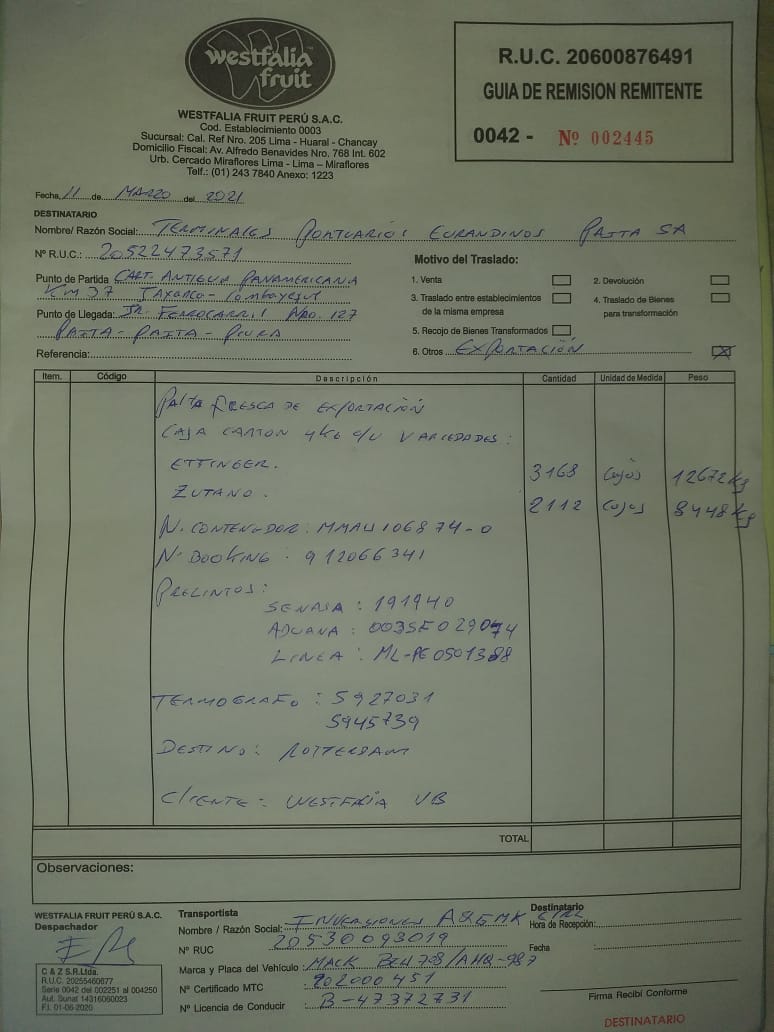 Westfalia
fruit
WESTFALIA FRUIT PERÚ S.A.C.
Cod. Establecimiento 0003
Sucursal: Cal. Ref Nro. 205 Lima - Huaral - Chancay
Domicilio Fiscal: Av. Alfredo Benavides Nro. 768 Int. 602
Urb. Cercado Miraflores Lima - Lima – Miraflores
Telf.: (01) 243 7840 Anexo: 1223
R.U.C. 20600876491
GUIA DE REMISION REMITENTE
0042 - Nº 002445
Fecha, 11 de MARZO del 2021
DESTINATARIO
Nombre/ Razón Social: TERMINALES PORTUARIOS EURANDINOS PAITA SA
Nº R.U.C.: 20522473571
Punto de Partida CART. ANTIGUA PANAMERICANA
KM 37
Punto de Llegada: JR. FERROCARRIL NRO. 127
PAITA - PAITA - PIURA
Referencia:
Motivo del Traslado:
1. Venta
2. Devolución
3. Traslado entre establecimientos
de la misma empresa
4. Traslado de Bienes
para transformación
5. Recojo de Bienes Transformados
6. Otros EXPORTACIÓN X
Item. Código Descripción Cantidad Unidad de Medida Peso
PALTA FRESCA DE EXPORTACIÓN
CAJA CARTON 4KG C/U VARIEDADES:
ETTINGER. 3168 Cajas 12672 kg
ZUTANO. 2112 Cajas 8448 kg
N. CONTENEDOR: MMAU 106874-0
Nº BOOKING : 912066341
PRECINTOS:
SENASA : 191940
ADUANA : 003SE029074
LINEA : ML-PE0501388
TERMOGRAFO : 5927031
5945739
DESTINO: ROTTERDAM
CLIENTE: WESTFALIA VB
TOTAL
Observaciones:
WESTFALIA FRUIT PERÚ S.A.C.
Despachador
C & Z S.R.Ltda.
R.U.C. 20255460677
Serie 0042 del 002251 al 004250
Aut. Sunat 14316060023
F.I. 01-06-2020
Transportista
Nombre / Razón Social: INVERSIONES A&EMK EIRL
Nº RUC 20530093019
Marca y Placa del Vehículo: MACK / AHQ-987
Nº Certificado MTC 202000451
Nº Licencia de Conducir B-47372731
Destinatario
Hora de Recepción:
Fecha
Firma Recibí Conforme
DESTINATARIO